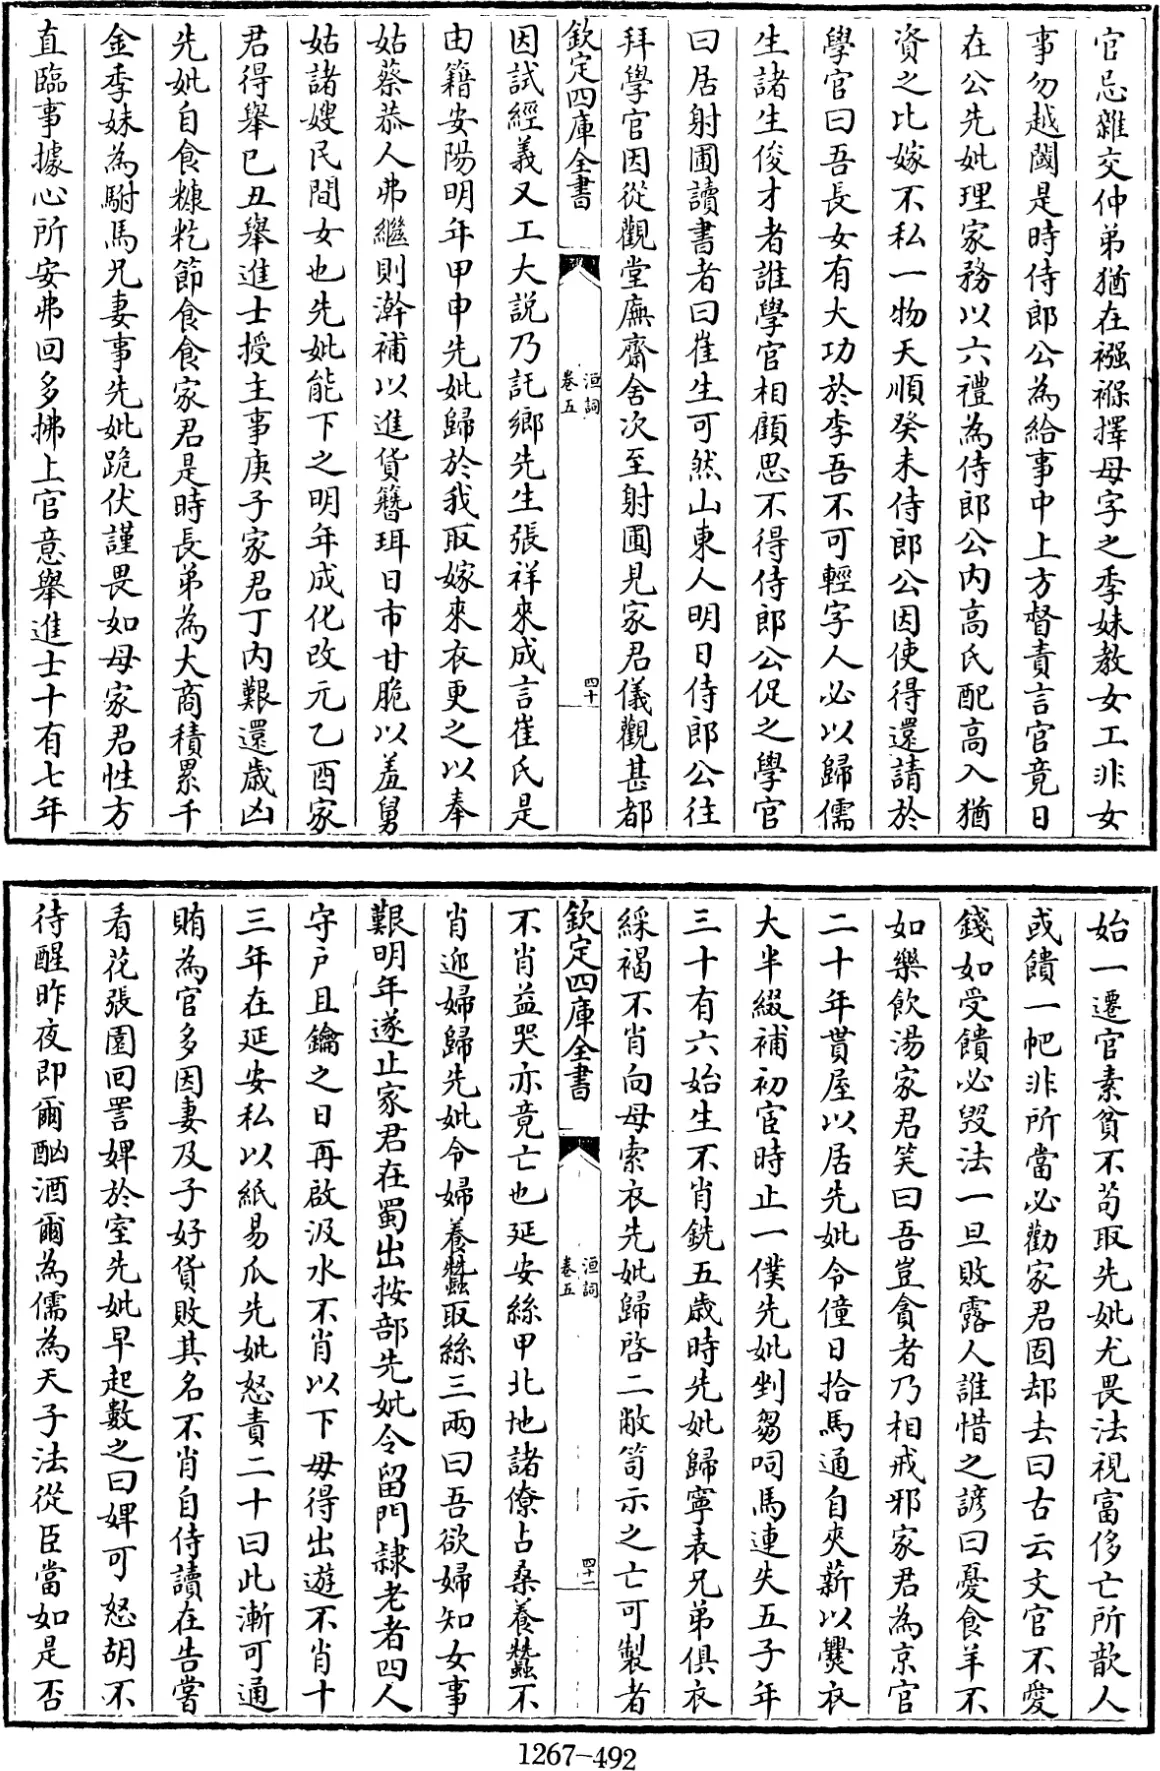 官忌雜交仲弟猶在襁褓擇母字之季妹教女工非女
事勿越閫是時侍郎公為給事中上方督責言官竟日
在公先妣理家務以六禮為侍郎公内高氏配高入猶
資之比嫁不私一物天順癸未侍郎公因使得還請於
學官曰吾長女有大功於李吾不可輕字人必以歸儒
生諸生俊才者誰學官相顧思不得侍郎公促之學官
曰居射圃讀書者曰崔生可然山東人明日侍郎公往
拜學官因從觀堂廡齋舍次至射圃見家君儀觀甚都
欽定四庫全書
洹詞
卷五
四十
因試經義又工大説乃託鄉先生張祥來成言崔氏是
由籍安陽明年甲申先妣歸於我取嫁來衣更之以奉
姑蔡恭人弗繼則澣補以進貨簪珥日市甘脆以羞舅
姑諸嫂民間女也先妣能下之明年成化改元乙酉家
君得舉已丑舉進士授主事庚子家君丁内艱還歲凶
先妣自食糠籺節食食家君是時長弟為大商積累千
金季妹為駙馬兄妻事先妣跪伏謹畏如母家君性方
直臨事據心所安弗回多拂上官意舉進士十有七年
始一遷官素貧不苟取先妣尤畏法視富侈亡所歆人
或饋一帊非所當必勸家君固却去曰古云文官不愛
錢如受饋必毀法一旦敗露人誰惜之諺曰憂食羊不
如樂飲湯家君笑曰吾豈貪者乃相戒邪家君為京官
二十年貰屋以居先妣令僮日拾馬通自夾薪以爨衣
大半綴補初宦時止一僕先妣剉芻飼馬連失五子年
三十有六始生不肖銑五歲時先妣歸寧表兄弟俱衣
綵褐不肖向母索衣先妣歸啓二敝笥示之亡可製者
欽定四庫全書
洹詞
卷五
四十一
不肖益哭亦竟亡也延安絲甲北地諸僚占桑養蠶不
肖迎婦歸先妣令婦養蠶取絲三兩曰吾欲婦知女事
艱明年遂止家君在蜀出按部先妣令留門隸老者四人
守户且鑰之日再啟汲水不肖以下毋得出遊不肖十
三年在延安私以紙易瓜先妣怒責二十曰此漸可通
賄為官多因妻及子好貨敗其名不肖自侍讀在告嘗
看花張園回詈婢於室先妣早起數之曰婢可怒胡不
待醒昨夜即爾酗酒爾為儒為天子法從臣當如是否
1267-492